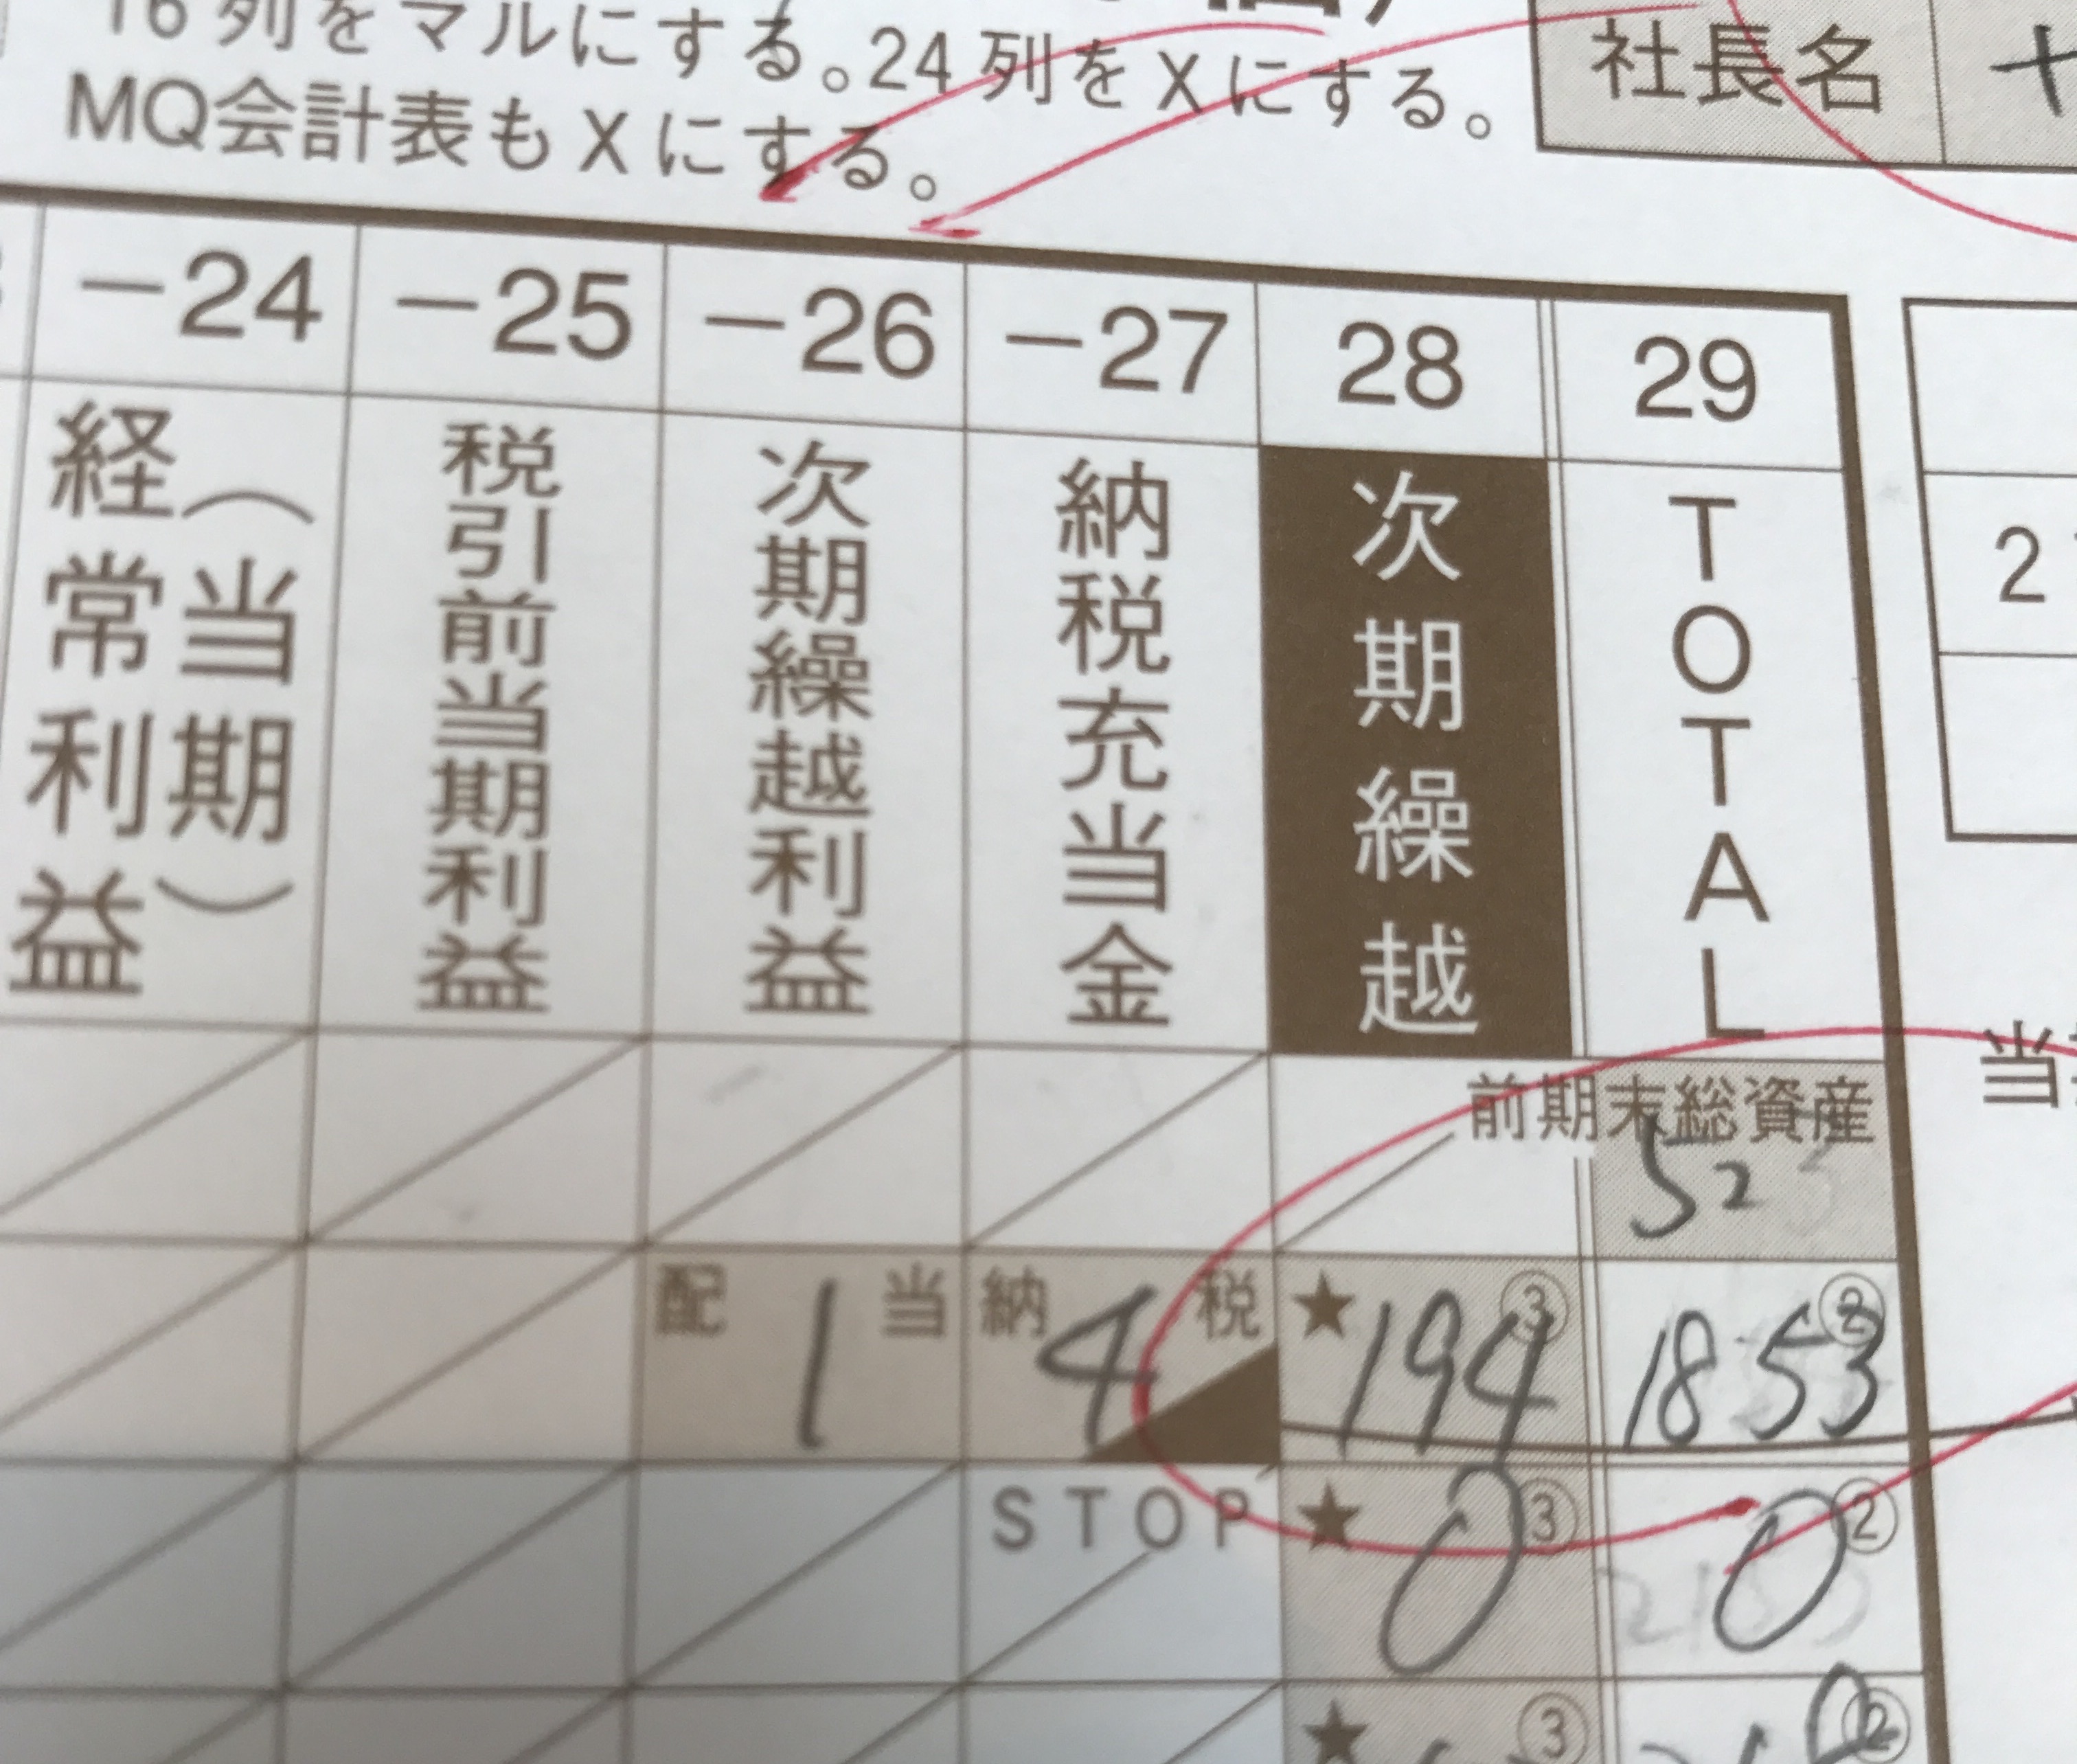 16列をマルにする。24列をXにする。
MQ会計表もXにする。
社長名
-24 -25 -26 -27 28 29
経常利益(当期)
税引前当期利益
次期繰越利益
納税充当金
次期繰越
TOTAL
前期末総資産
52
配当 1 納税 4 ★194 ③ 1853 ②
STOP ★0 ③ 0 ②
★ ③ ②
2
当